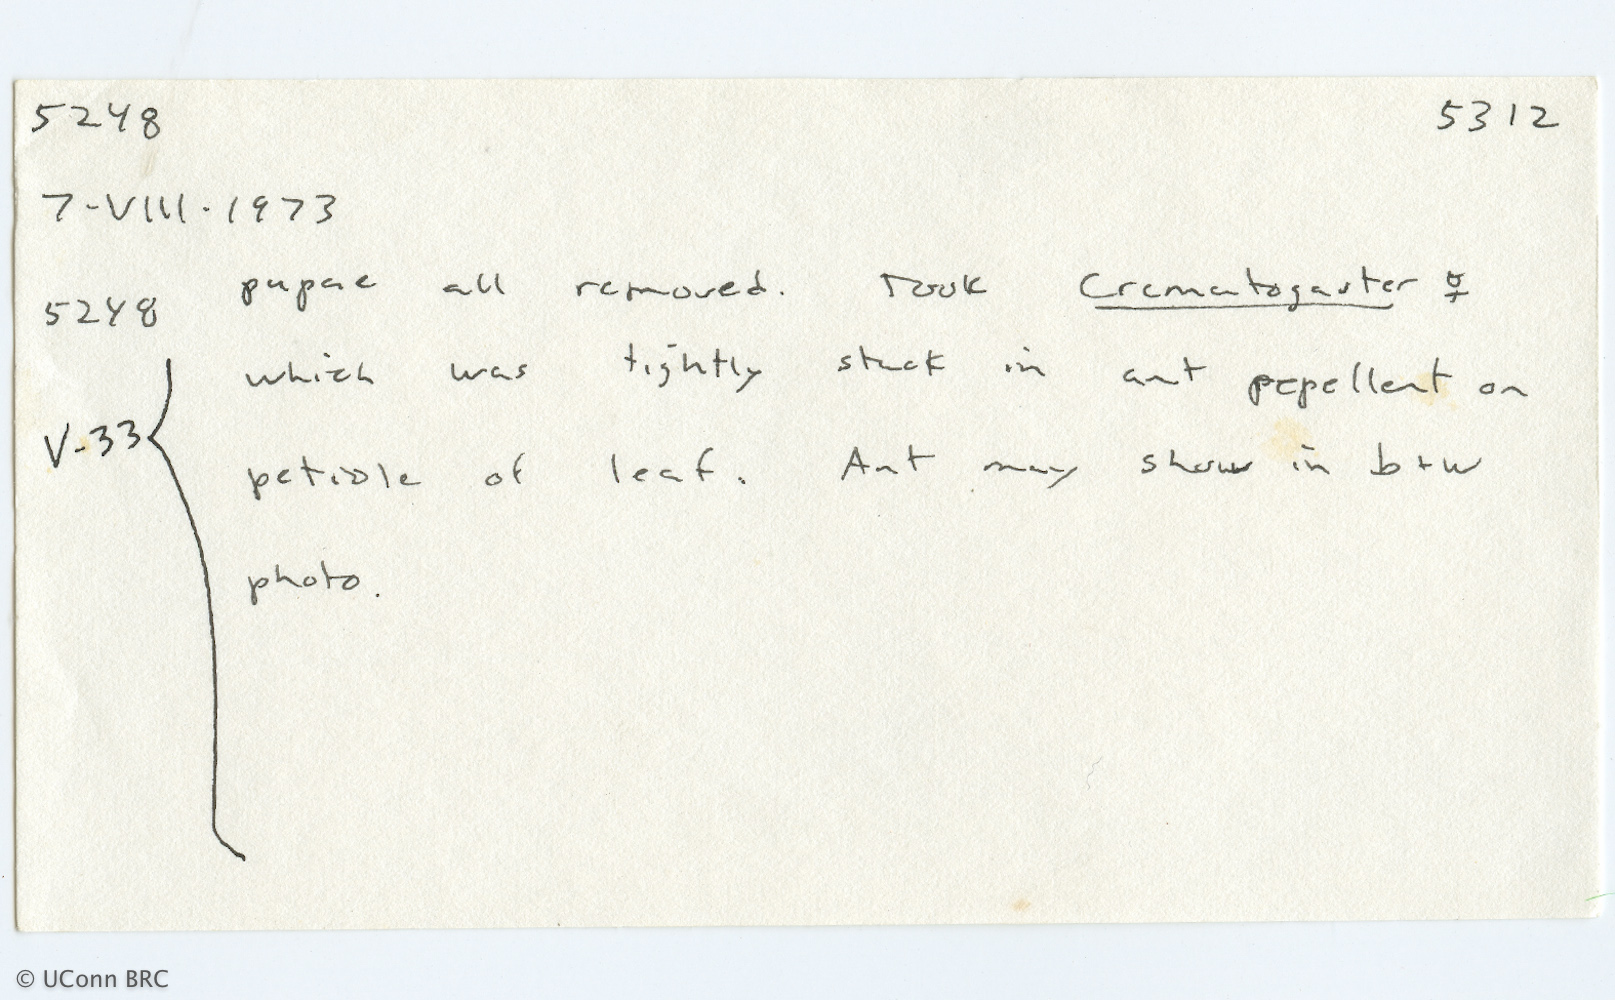 5248 5312
7-VIII.1973
5248 pupae all removed. Took Crematogaster ☿
which was tightly stuck in ant pepellent on
V-33 petiole of leaf. Ant may show in b+w
photo.
© UConn BRC